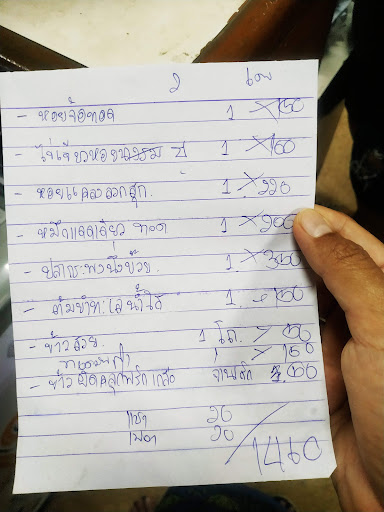 2 เอว
- หอยจ๊อทอด 1 150
- ไข่เจียวหอยนางรม 1 160
- หอยแครงลวกสุก. 1 220
- หมึกแดดเดียว ทอด 1 200
- ปลากะพงนึ่งบ๊วย. 1 350
- ต้มยำทะเลน้ำใส 1 150
- ข้าวสวย. 1 โถ. 50
1 150
- ข้าวผัดคลุกพริกเกลือ จานเล็ก 50
แข็ง 20
เปล่า 20
1460